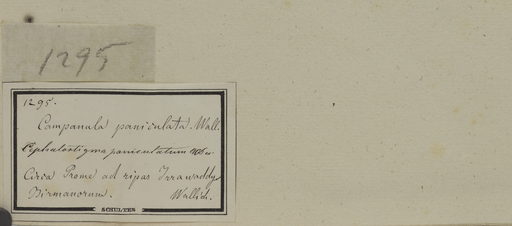 1295
1295.
Campanula paniculata. Wall.
Cephalostigma paniculatum
Circa Prome ad ripas Irrawaddy
Birmanorum. Wallich.
SCHULTES